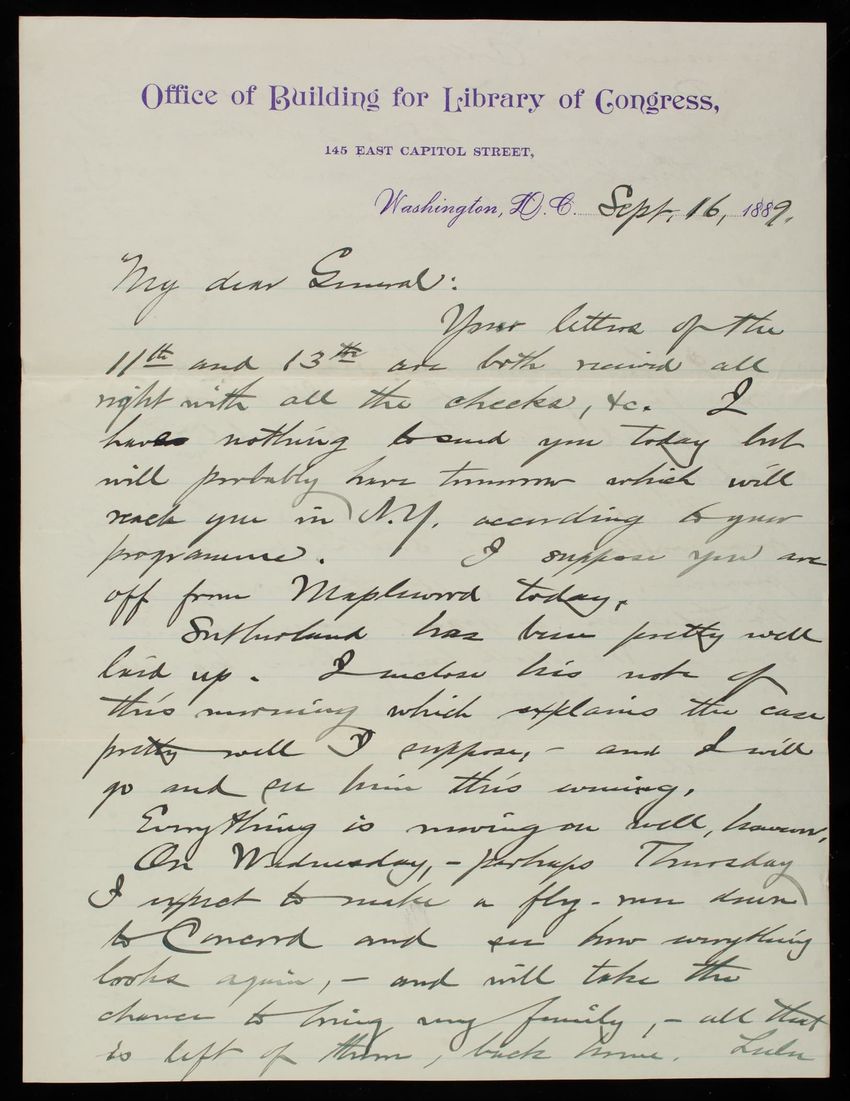 Office of Building for Library of Congress,
145 EAST CAPITOL STREET,
Washington, D.C. Sept. 16, 1889.
My dear General:
Your letters of the
11th and 13th are both received all
right with all the checks, &c. I
have nothing to send you today but
will probably have tomorrow which will
reach you in N.Y. according to your
programme. I suppose you are
off from Maplewood today.
Sutherland has been pretty well
laid up. I enclose his note of
this morning which explains the case
pretty well I suppose, - and I will
go and see him this evening.
Everything is moving on well, however.
On Wednesday, - perhaps Thursday
I expect to make a fly-run down
to Concord and see how everything
looks again, - and will take the
chance to bring my family, - all that
is left of them, back home. Lulu